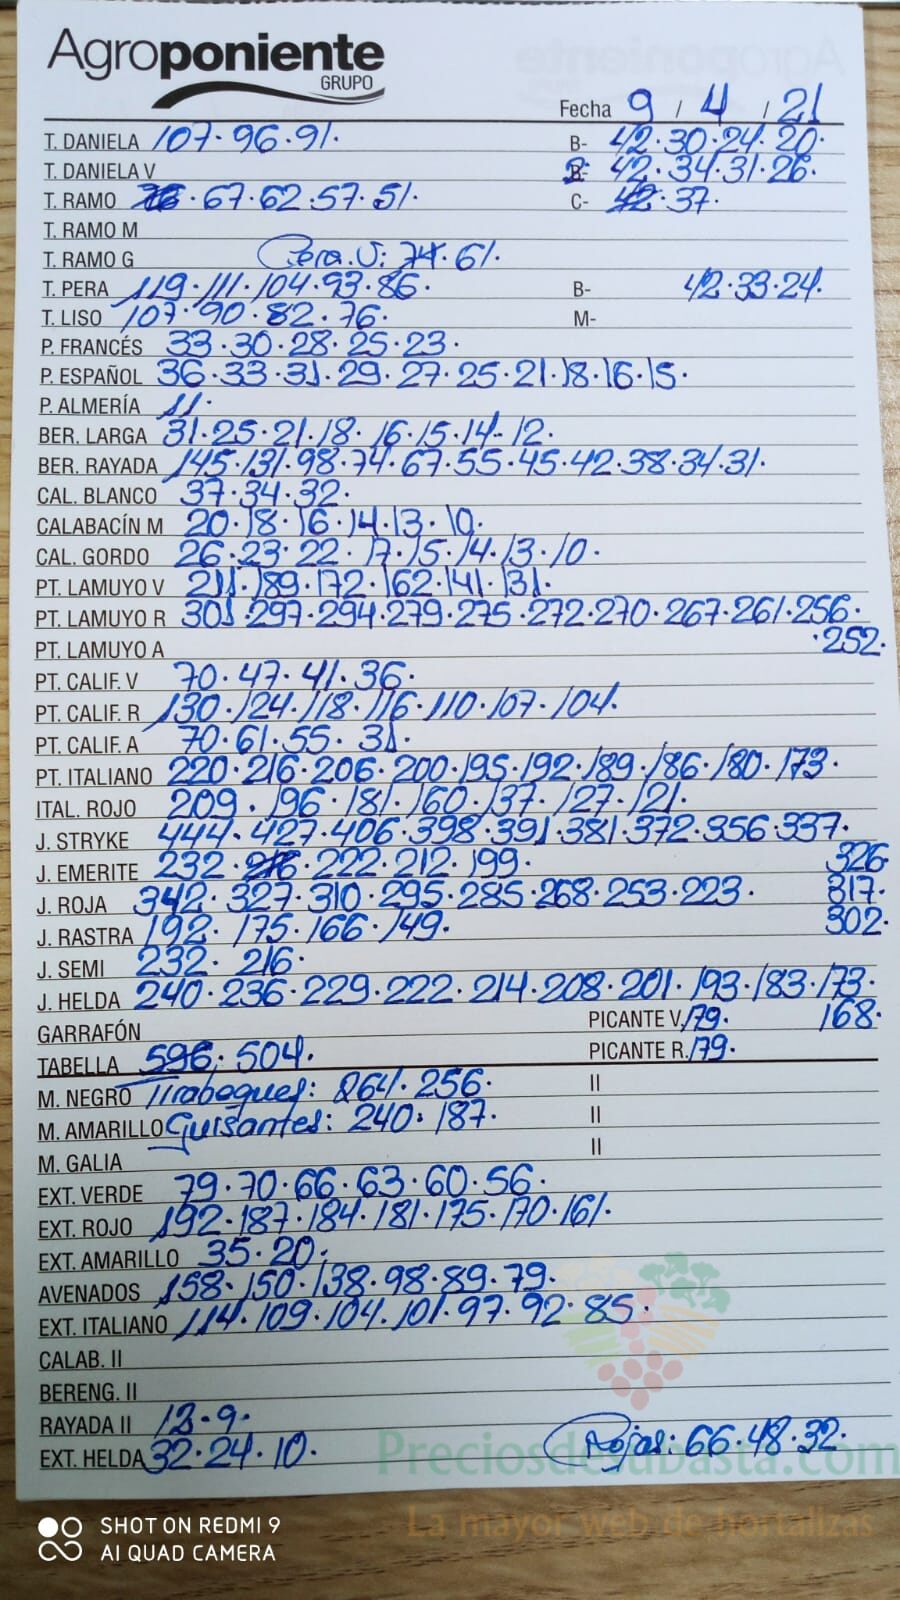 Agroponiente
GRUPO
Fecha 9 / 4 / 21
T. DANIELA 107·96·91· B- 42·30·24·20·
T. DANIELA V B- 42·34·31·26·
T. RAMO ·67·62·57·51· C- 42·37·
T. RAMO M
T. RAMO G Pera.V: 74·61·
T. PERA 119·111·104·93·86· B- 42·33·24·
T. LISO 107·90·82·76· M-
P. FRANCÉS 33·30·28·25·23·
P. ESPAÑOL 36·33·31·29·27·25·21·18·16·15·
P. ALMERÍA 11·
BER. LARGA 31·25·21·18·16·15·14·12·
BER. RAYADA 145·131·98·74·67·55·45·42·38·34·31·
CAL. BLANCO 37·34·32·
CALABACÍN M 20·18·16·14·13·10·
CAL. GORDO 26·23·22·17·15·14·13·10·
PT. LAMUYO V 211·189·172·162·141·131·
PT. LAMUYO R 301·297·294·279·275·272·270·267·261·256·
PT. LAMUYO A ·252·
PT. CALIF. V 70·47·41·36·
PT. CALIF. R 130·124·118·116·110·107·104·
PT. CALIF. A 70·61·55·31·
PT. ITALIANO 220·216·206·200·195·192·189·186·180·173·
ITAL. ROJO 209·196·181·160·137·127·121·
J. STRYKE 444·427·406·398·391·381·372·356·337·
J. EMERITE 232·216·222·212·199· 326·
J. ROJA 342·327·310·295·285·268·253·223· 317·
J. RASTRA 192·175·166·149· 302·
J. SEMI 232·216·
J. HELDA 240·236·229·222·214·208·201·193·183·173·
GARRAFÓN PICANTE V. 179· 168·
TABELLA 596·504· PICANTE R. 179·
M. NEGRO Tirabeques: 264·256· II
M. AMARILLO Guisantes: 240·187· II
M. GALIA II
EXT. VERDE 79·70·66·63·60·56·
EXT. ROJO 192·187·184·181·175·170·161·
EXT. AMARILLO 35·20·
AVENADOS 158·150·138·98·89·79·
EXT. ITALIANO 114·109·104·101·97·92·85·
CALAB. II
BERENG. II
RAYADA II 12·9·
EXT. HELDA 32·24·10· Rojas: 66·48·32·
Preciosdesubasta.com
La mayor web de hortalizas
SHOT ON REDMI 9
AI QUAD CAMERA